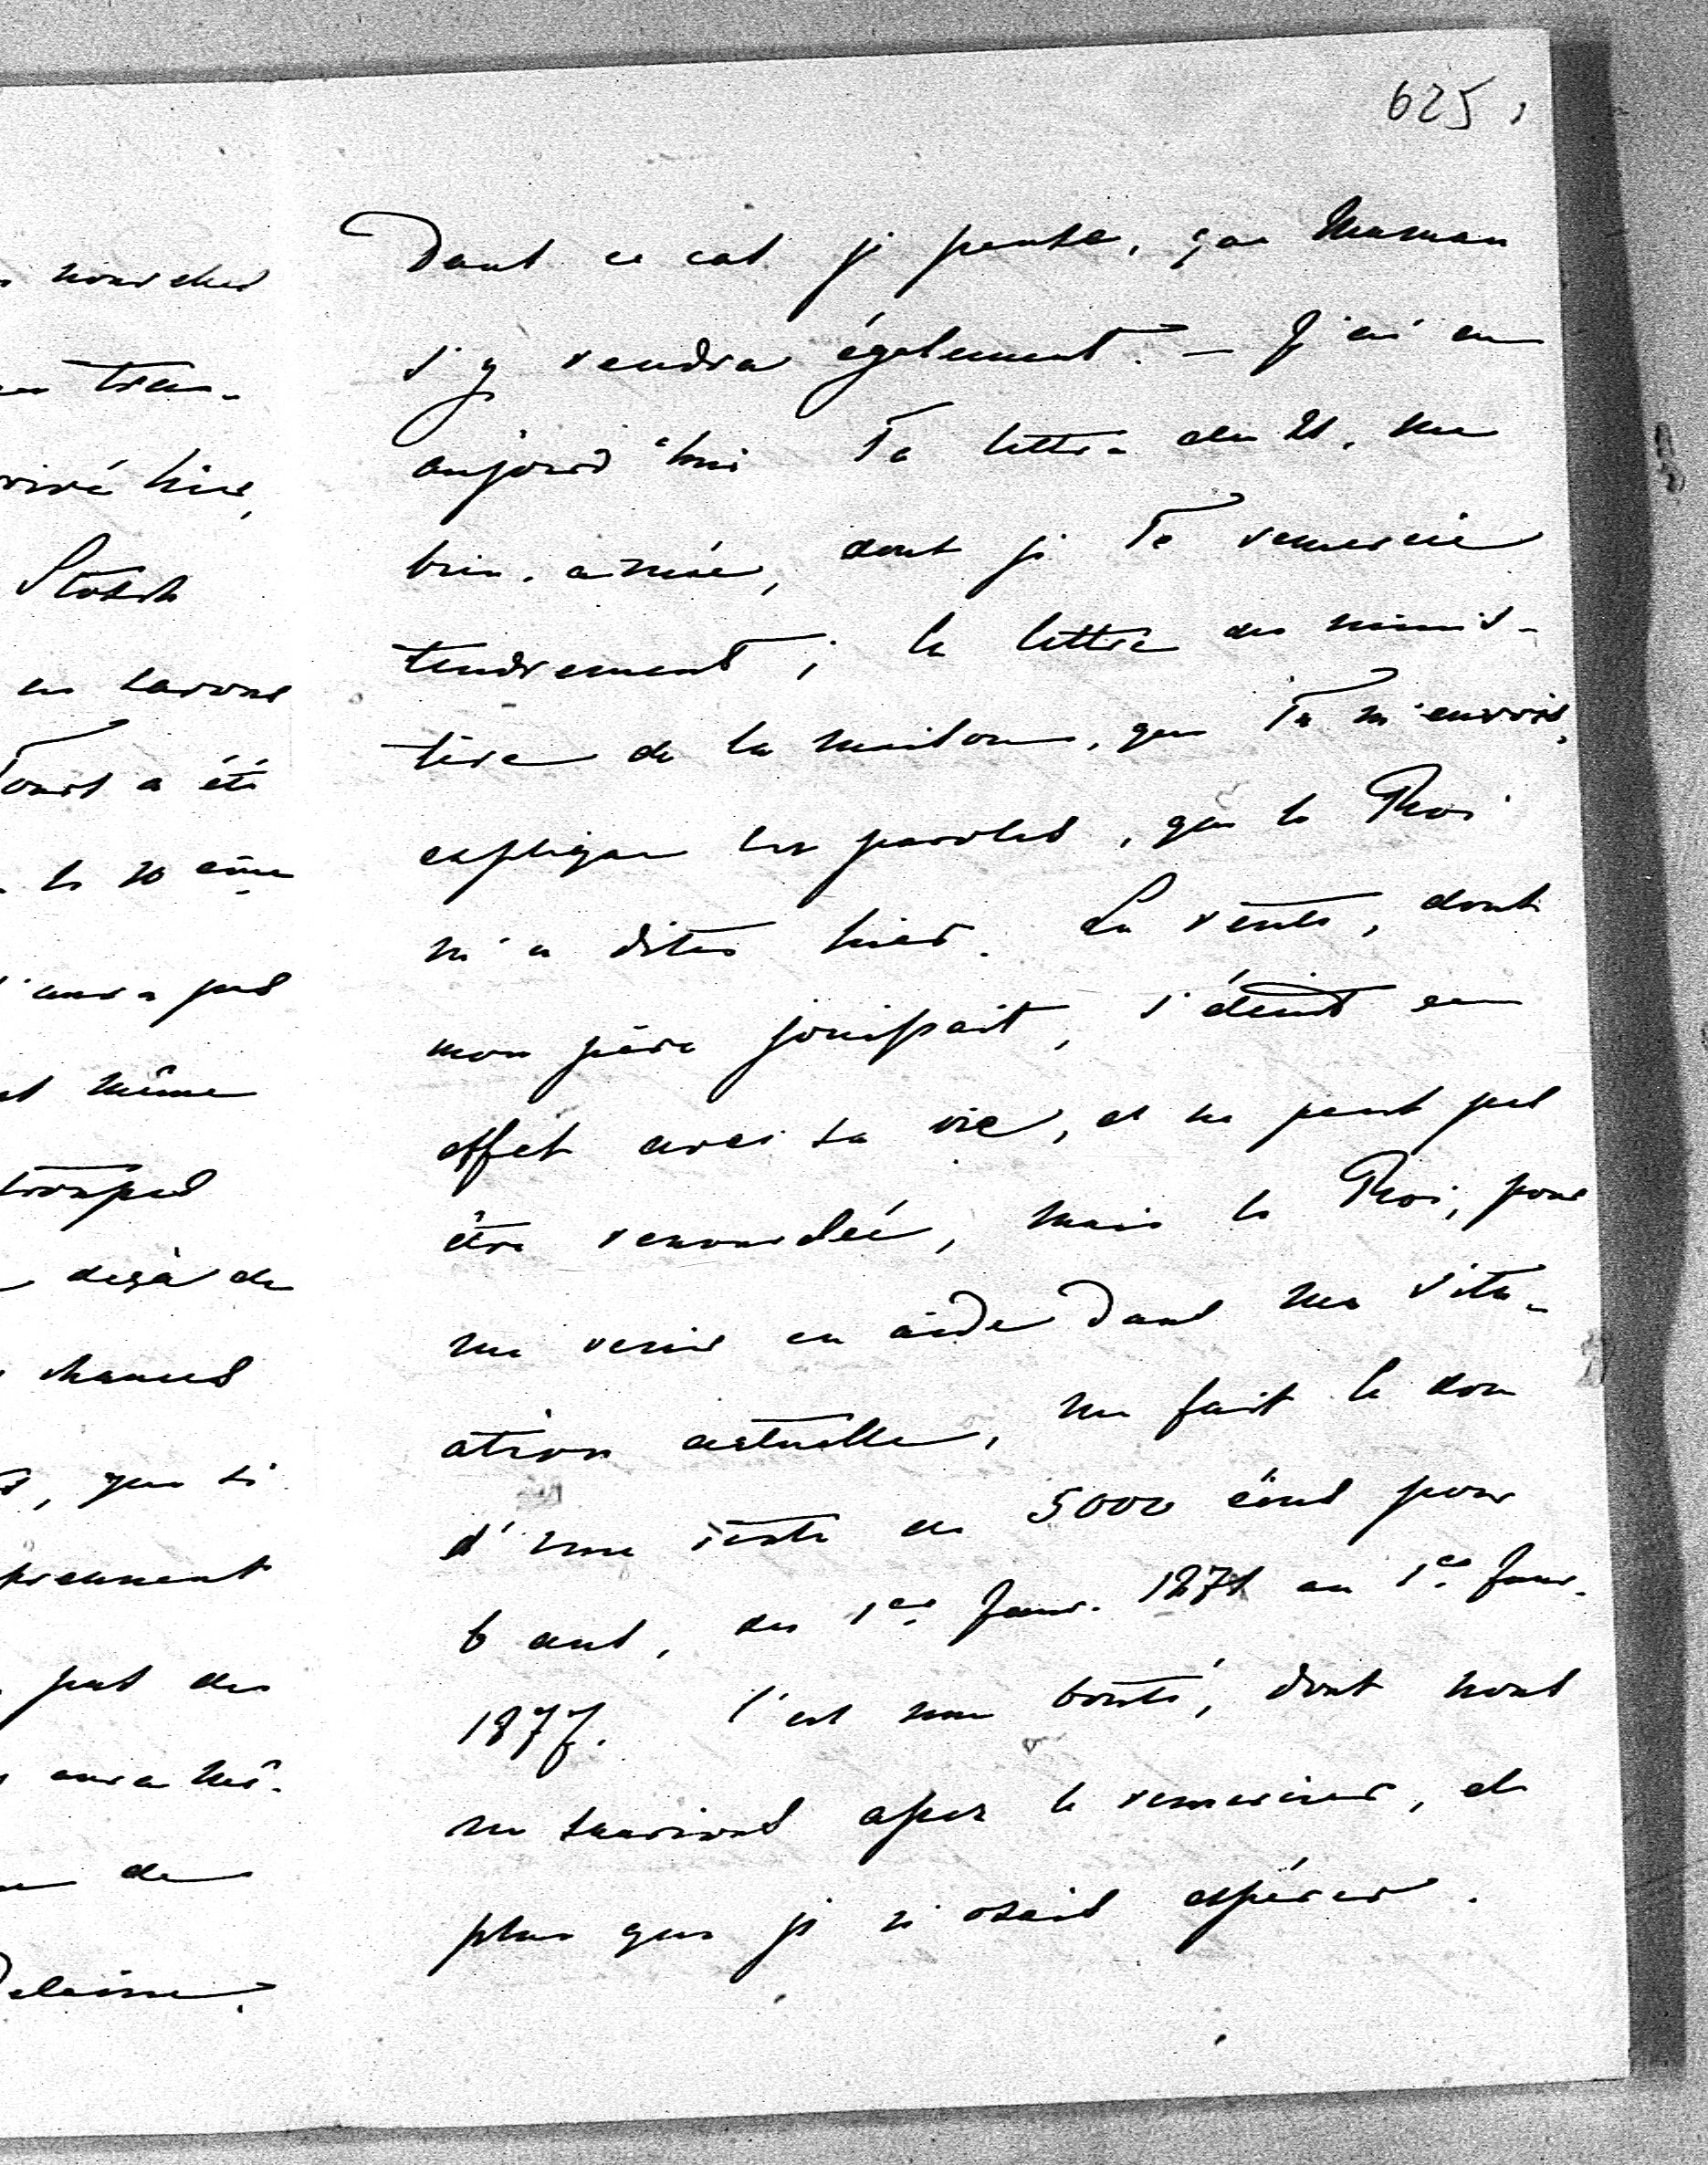 625,
Dans ce cas je pense, que Maman
s'y rendra également. — J'ai eu
aujourd'hui Ta lettre du 21, ma
bien-aimée, dont je Te remercie
tendrement; la lettre du minis-
tère de la maison, que Tu m'envois,
explique les paroles, que le Roi
m'a dites hier. La rente, dont
mon père jouissait, s'éteint en
effet avec sa vie, et ne peut pas
être renouvelée, mais le Roi, pour
me venir en aide dans ma situ-
ation actuelle, me fait le don
d'une rente de 5000 écus pour
6 ans, du 1er Janv. 1871 au 1er Janv.
1877. C'est une bonté, dont nous
ne saurions assez le remercier, et
plus que je n'osais espérer.
nouvelles
tran-
hier,
Stosch
en savons
Tours a été
le 10 ème
aura pas
même
troupes
déjà de
chances
, que si
prennent
pas de
aura mê-
de